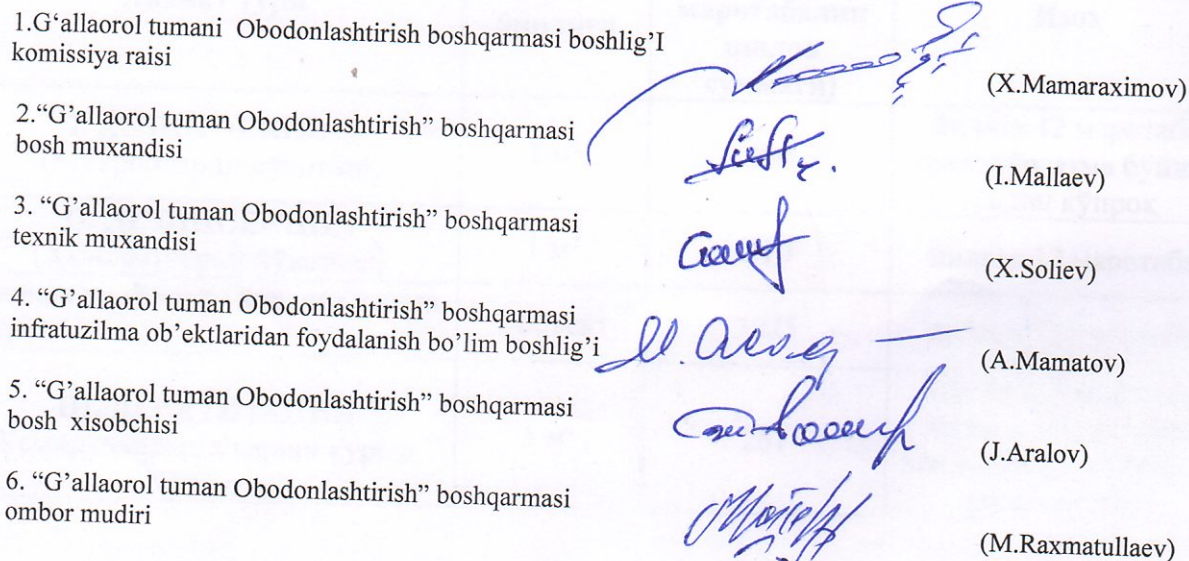 1.G‘allaorol tumani Obodonlashtirish boshqarmasi boshlig’I
komissiya raisi
(X.Mamaraximov)
2.“G’allaorol tuman Obodonlashtirish” boshqarmasi
bosh muxandisi
(I.Mallaev)
3. “G’allaorol tuman Obodonlashtirish” boshqarmasi
texnik muxandisi
(X.Soliev)
4. “G’allaorol tuman Obodonlashtirish” boshqarmasi
infratuzilma ob’ektlaridan foydalanish bo’lim boshlig’i
(A.Mamatov)
5. “G’allaorol tuman Obodonlashtirish” boshqarmasi
bosh xisobchisi
(J.Aralov)
6. “G’allaorol tuman Obodonlashtirish” boshqarmasi
ombor mudiri
(M.Raxmatullaev)